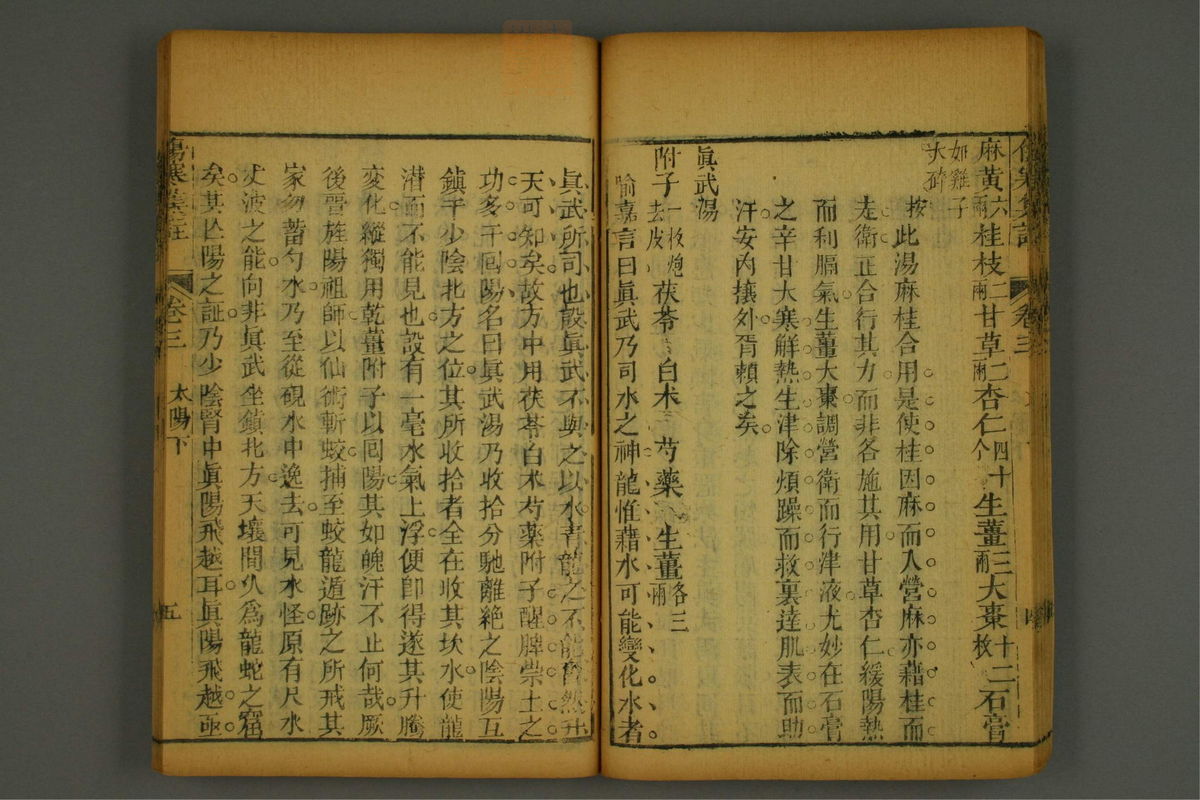 傷寒集註 卷三
麻黃六兩桂枝二兩甘草二兩杏仁四十个生薑三兩大棗十二枚石膏
如雞子大碎
按此湯麻桂合用是使桂因麻而入營麻亦藉桂而
走衛正合行其力而非各施其用甘草杏仁緩陽熱
而利膈氣生薑大棗調營衛而行津液尤妙在石膏
之辛甘大寒解熱生津除煩躁而救裏達肌表而助
汗安內攘外胥賴之矣
眞武湯
附子一枚炮去皮茯苓白朮芍藥生薑各三兩
喻嘉言曰眞武乃司水之神龍惟藉水可能變化水者
眞武所司也設眞武不與之以水青龍之不能奮然升
天可知矣故方中用茯苓白朮芍藥附子醒脾崇土之
功多于囘陽名曰眞武湯乃收拾分馳離絕之陰陽互
鎮于少陰北方之位其所收拾者全在收其坎水使龍
潜而不能見也設有一毫水氣上浮便卽得遂其升騰
變化縱獨用乾薑附子以囘陽其如魄汗不止何哉厥
後晉旌陽祖師以仙術斬蛟捕至蛟龍遁跡之所戒其
家勿蓄勺水乃至從硯水中逸去可見水怪原有尺水
丈波之能向非眞武坐鎮北方天壤間久爲龍蛇之窟
矣其亡陽之証乃少陰腎中眞陽飛越耳眞陽飛越亟
傷寒集註 卷三 太陽下 五